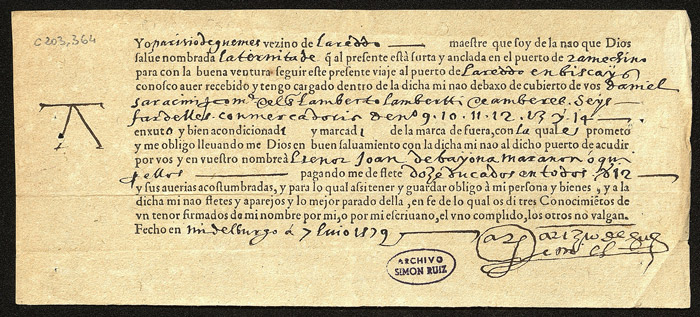 C 203, 364
Yo parisio de guemes vezino de laredo maestre que soy de la nao que Dios
salue nombrada la ternitade q̃ al presente està surta y anclada en el puerto de ramechino
para con la buena ventura seguir este presente viaje al puerto de laredo en biscaya
conosco auer recebido y tengo cargado dentro de la dicha mi nao debaxo de cubierto de vos daniel
saracini lamberto lambertti de amberes. seys
fardelles con mercadoria de nº 9. 10. 11. 12. 13 y 14
enxuto y bien acondicionad y marcad de la marca de fuera, con la qual es prometo
y me obligo lleuando me Dios en buen saluamiento con la dicha mi nao al dicho puerto de acudir
por vos y en vuestro nombre à l senor Joan de bayona maranon o qui
pellos pagando me de flete doze ducados en todos d 12
y sus auerias acostumbradas, y para lo qual assi tener y guardar obligo à mi persona y bienes, y a la
dicha mi nao fletes y aparejos y lo mejor parado della, en fe de lo qual os di tres Conocimiẽtos de
vn tenor firmados de mi nombre por mi, o por mi escriuano, el vno complido, los otros no valgan.
Fecho en midelburgo à 7 luio 1579
ARCHIVO
SIMON RUIZ